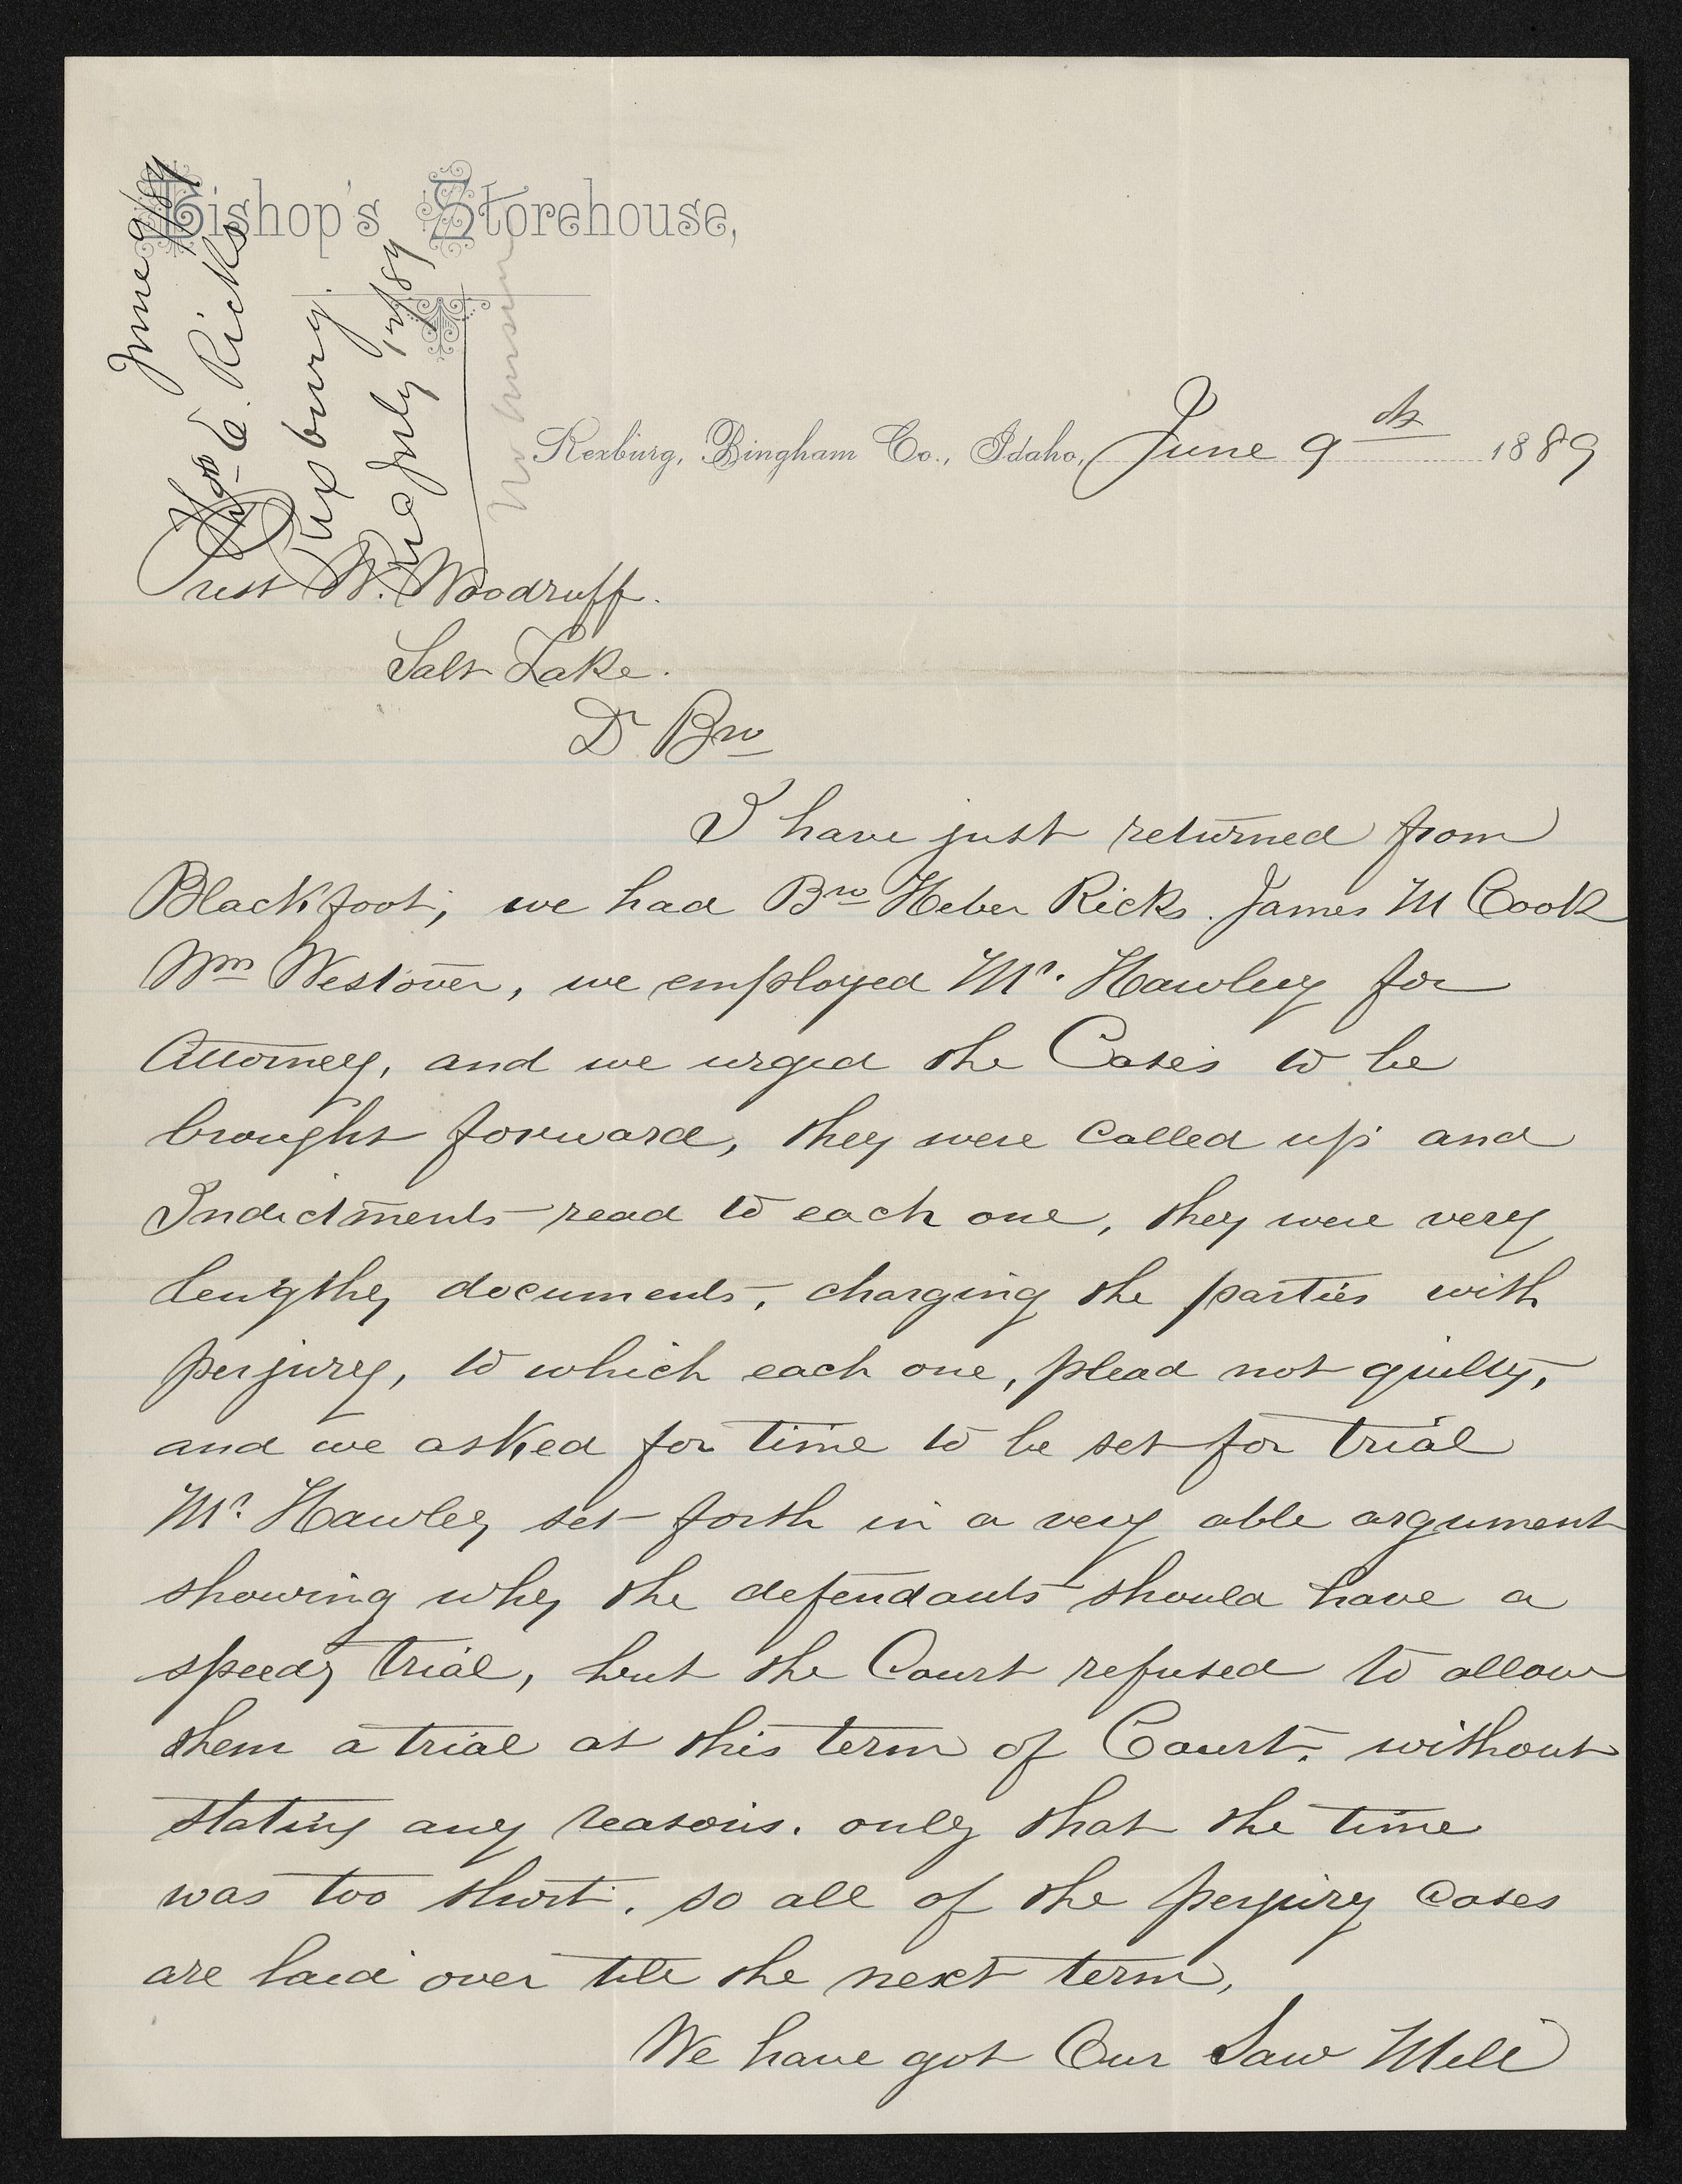 Bishop's Storehouse,
June 9/89
Thos E. Ricks
Rexburg.
Recd July 12/89
Rexburg, Bingham Co., Idaho, June 9th 1889
Prest W. Woodruff.
Salt Lake.
Dr Bro
I have just returned from
Blackfoot; we had Bro Heber Ricks. James M Cook
Wm Westover, we employed Mr. Hawley for
Attorney, and we urged the Cases to be
brought forward, they were called up and
Indictments read to each one, they were very
lengthy documents, charging the parties with
perjury, to which each one, plead not guilty,
and we asked for time to be set for trial
Mr. Hawley set forth in a very able argument
showing why the defendants should have a
speedy trial, but the Court refused to allow
them a trial at this term of Court, without
stating any reasons. only that the time
was too short, so all of the perjury cases
are laid over till the next term,
We have got Our Saw Mill